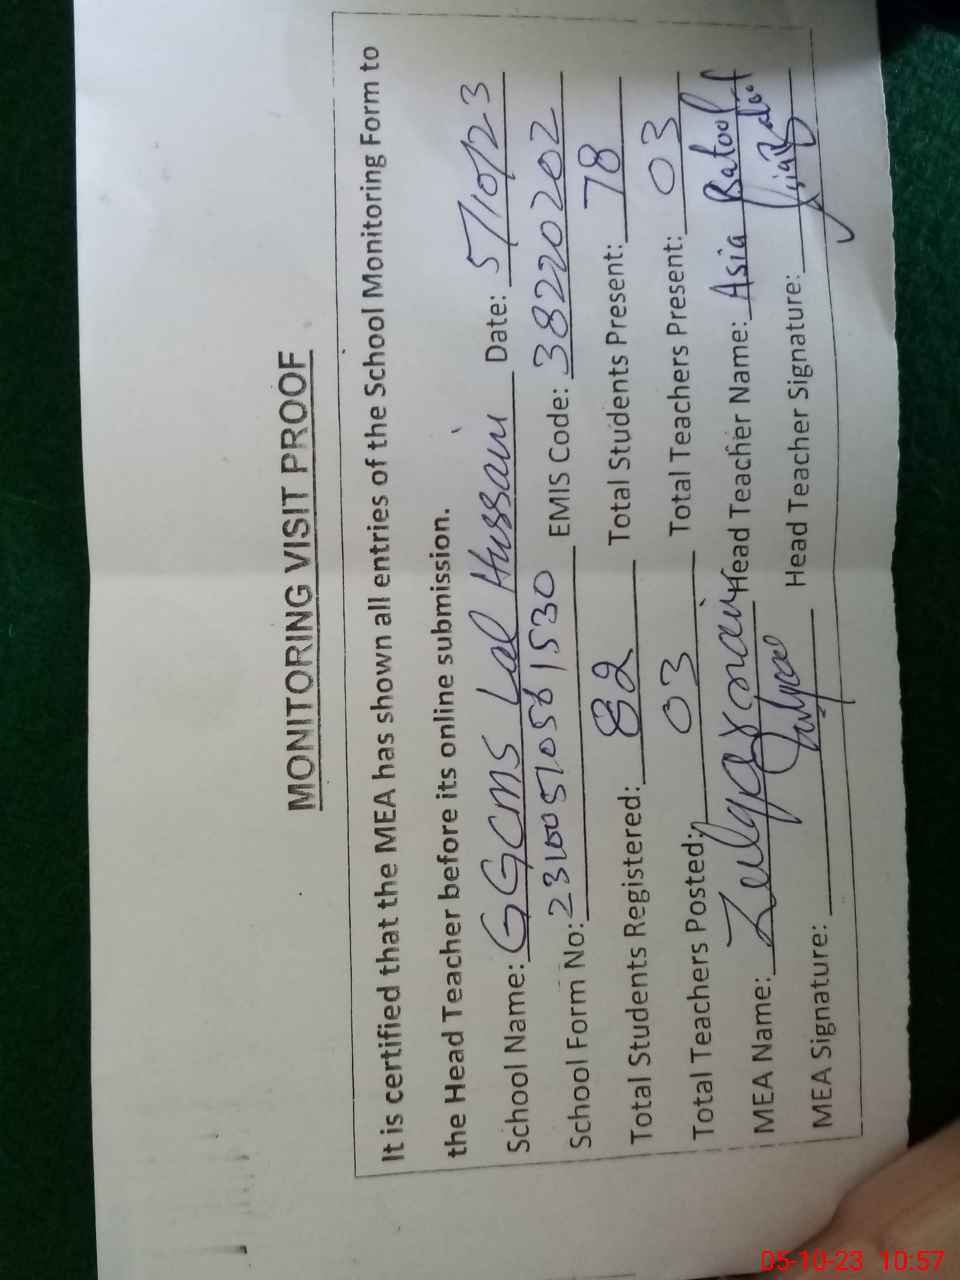 MONITORING VISIT PROOF
It is certified that the MEA has shown all entries of the School Monitoring Form to
the Head Teacher before its online submission.
School Name: GGCMS Lal Hussain Date: 5/10/23
School Form No: 23100570561530 EMIS Code: 38220202
Total Students Registered: 82 Total Students Present: 78
Total Teachers Posted: 03 Total Teachers Present: 03
MEA Name: Zulqarnain Head Teacher Name: Asia Batool
MEA Signature: Head Teacher Signature: Asia Batool
05-10-23 10:57